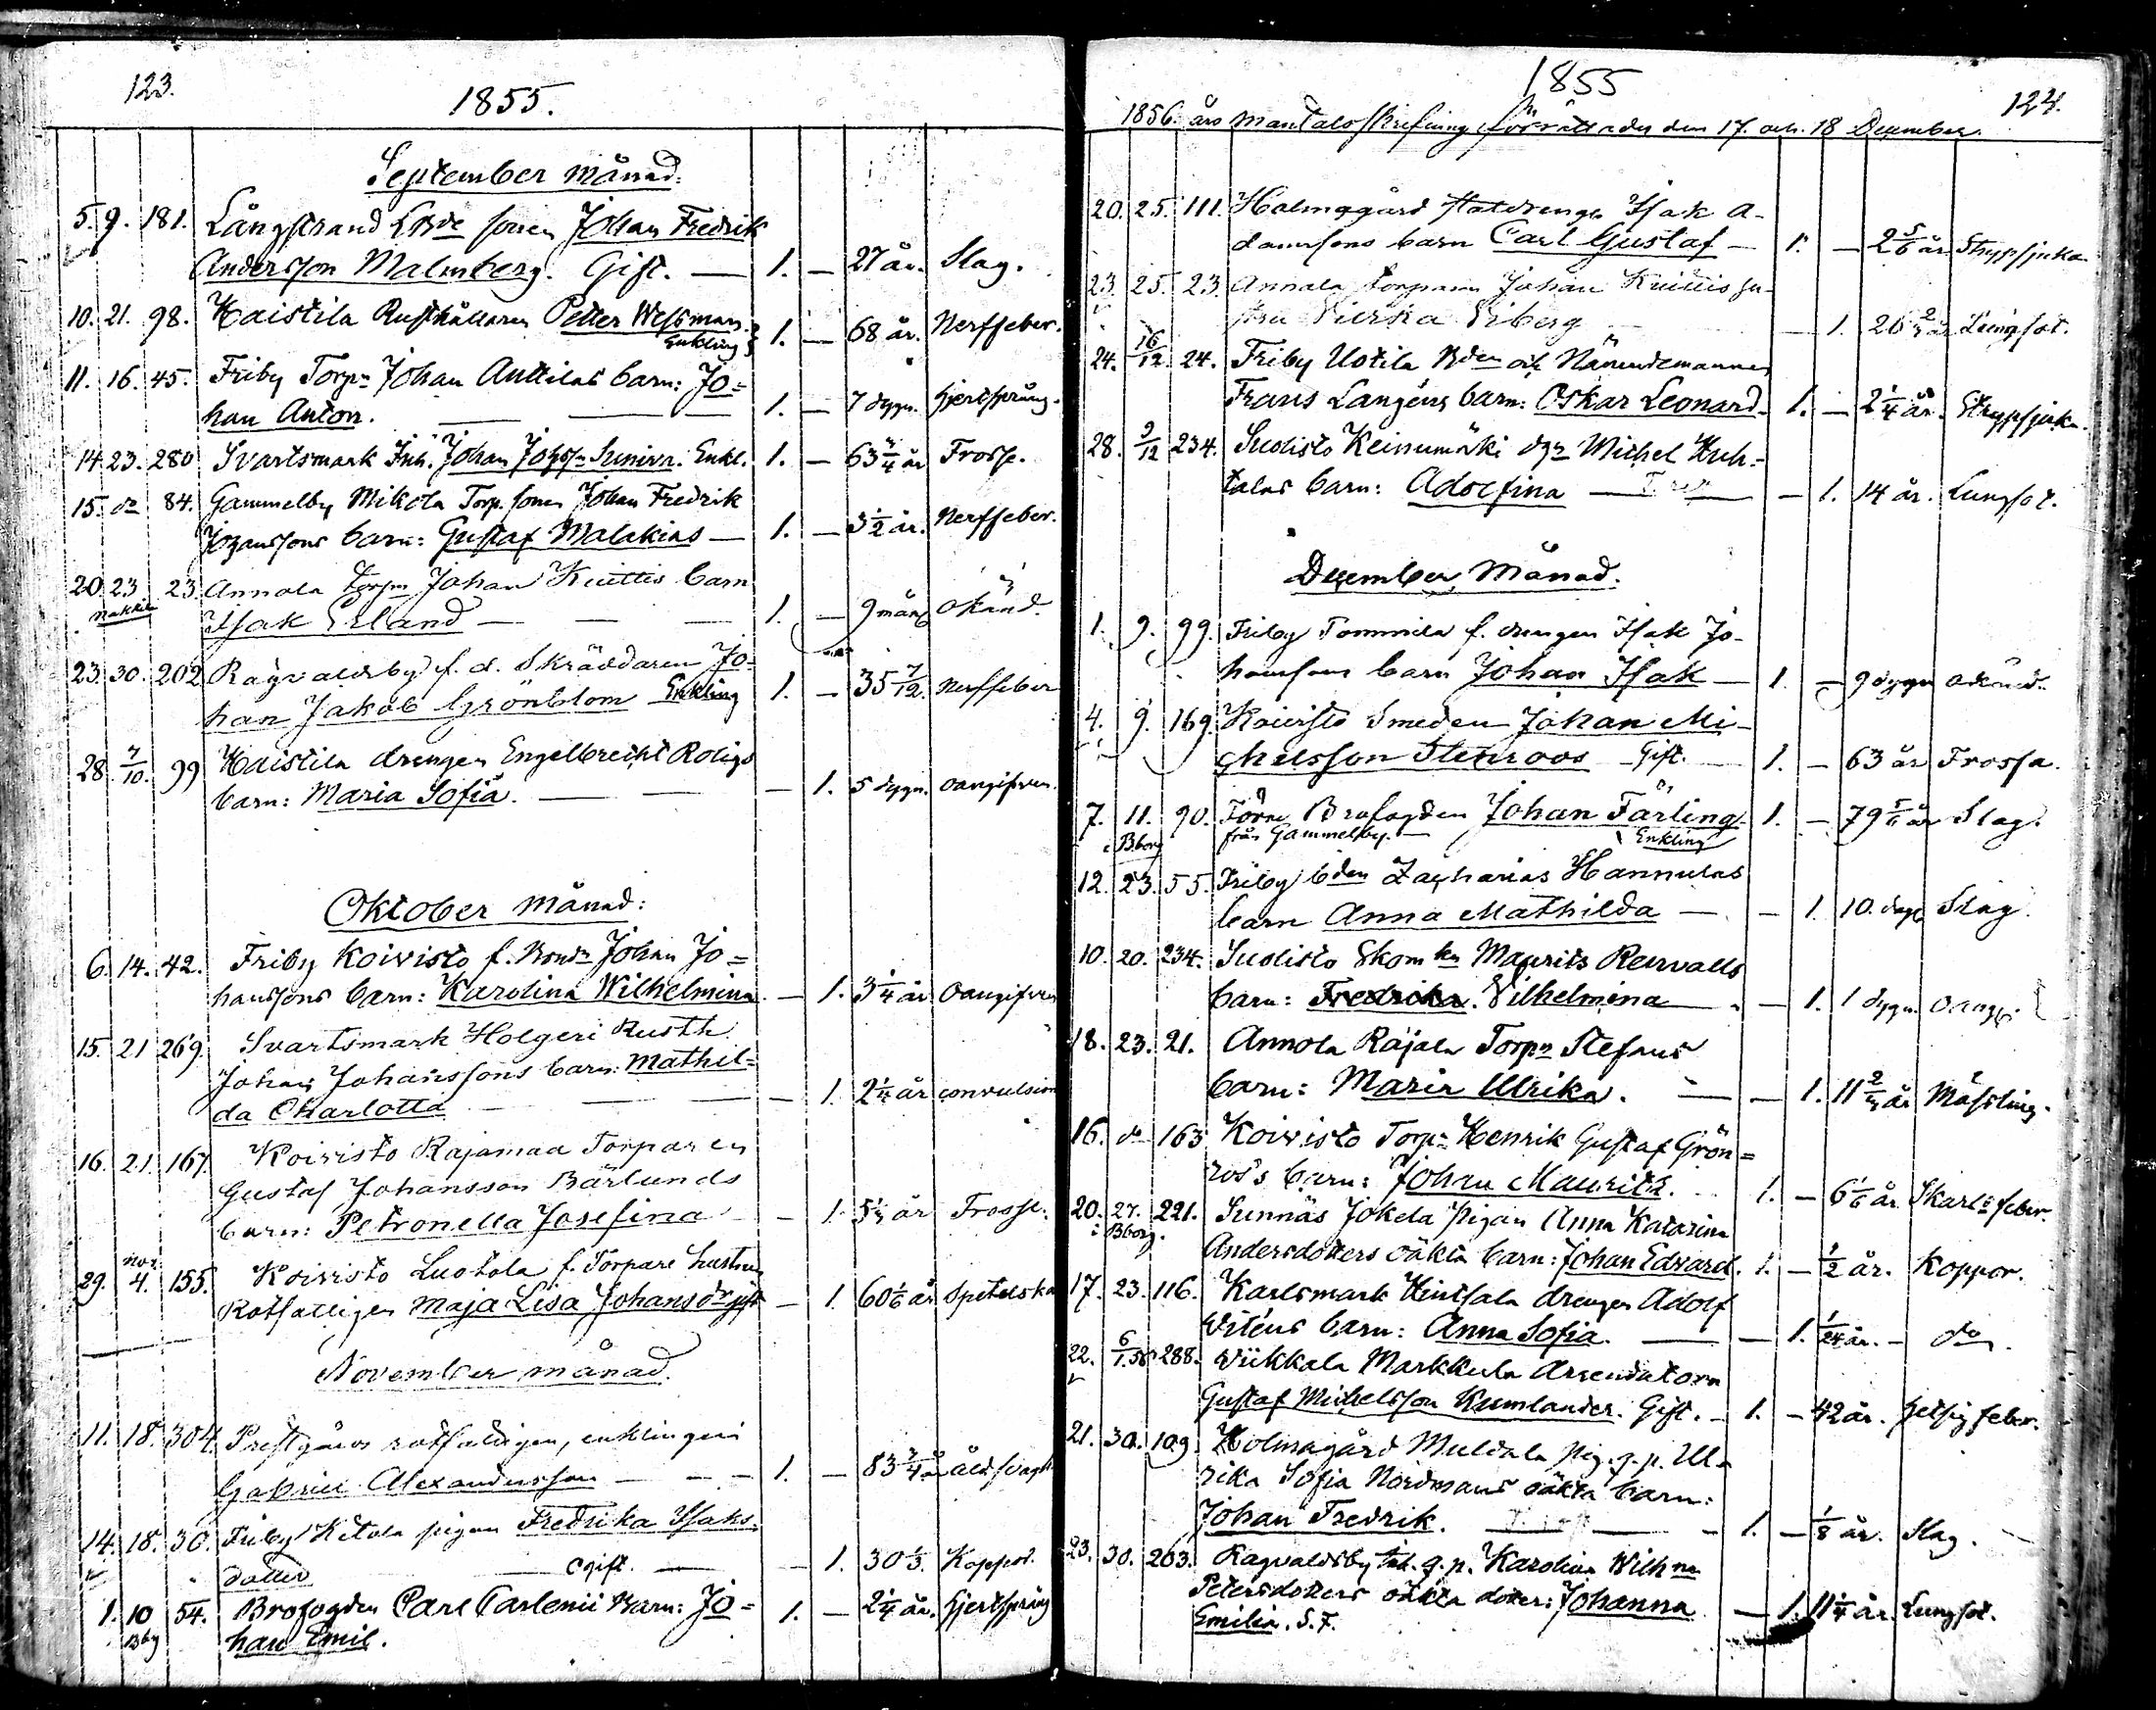 123.
1855.
September månad:
5. 9. 181. Långstrand LBde sonen Johan Fredrik
Andersson Malmberg. Gift. — 1. — 27 år. Slag.
10. 21. 98. Haistila Rusthållaren Petter Wessman
Enkling 1. — 68 år. Nerffeber.
11. 16. 45. Friby Torpn Johan Anttilas barn: Jo=
han Anton. — 1. — 7 dygn. hjertsprång.
14 23. 280 Svartsmark Inh. Johan Johsn Suniva. Enkl. 1. — 63 3/4 år Frosse.
15. do 84. Gammelby Mikola Torp. sonen Johan Fredrik
Johanssons barn: Gustaf Malakias — 1. — 3 1/2 år. Nerffeber.
20 23 23 Annola torpn Johan Knuttis barn
Nakkila Isak Erland — 1. — 9 mån okänd.
23. 30. 202 Ragvaldsby f. d. Skräddaren Jo=
han Jakob Grönblom Enkling 1. — 35 7/12. Nerffeber
28. 7/10. 99 Haistila drengen Engelbrecht Roligs
barn: Maria Sofia. — — 1. 5 dygn. oangifven.
Oktober månad:
6. 14. 42. Friby Koivisto f. Bondn Johan Jo=
hanssons barn: Karolina Wilhelmina. — 1. 3 1/4 år oangifven
15. 21 269 Svartsmark Holgeri Rusth.
Johan Johanssons barn: Mathil=
da Charlotta — — 1. 2 1/4 år convulsion
16. 21. 167. Koivisto Rajamaa Torparen
Gustaf Johansson Bärlunds
barn: Petronella Josefina — 1. 5 1/3 år Frosse.
29. nov. 4. 155. Koivisto Luotola f. Torpare hustrun
Rotfattigen Maja Lisa Johansdr gift — 1. 60 1/6 år Spetelska
November månad.
11. 18. 304. Prestgårds rotfattigen, enklingen
Gabriel Alexandersson — — 1. — 83 3/4 år ålds svagh.
14. 18. 30. Friby Kitola pigan Fredrika Isaks-
dotter ogift. — — 1. 30 1/3. Koppor.
1. 10 54. Brofogden Carl Carlenii Barn: Jo=
Bbg han Emil. 1. — 2 1/4 år. hjertsprång
1855
124.
1856. års mantalsskrifning förrättades den 17. och. 18 December.
20. 25. 111. Holmgård statdrenge Isak A-
damssons barn Carl Gustaf — 1. — 2 5/6 år Strypsjuka
23. 25. 23. Annala torparen Johan Knuttis hu-
stru Viberg — 1. 26 år Lungsot.
24. 16/12 24. Friby Uotila Bden och Nämndemannen
Frans Langéns barn: Oskar Leonard. 1. — 2 1/4 år. Strypsjuka.
28. 9/12 234. Suolisto Keinumäki Michel Huh-
talas barn: Adolfina — 1. 14 år. Lungsot.
December Månad.
1. 9. 99. Friby Tommila f. drengen Isak Jo-
hanssons barn Johan Isak — 1. — 9 dygn okänd.
4. 9. 169. Koivisto Smeden Johan Mi-
chelsson Stenroos Gift. — 1. — 63 år Frossa.
7. 11. 90. Förre Brofogden Johan Färling 1. — 79 år Slag.
i Bborg från Gammelby. — Enkling
12. 23. 55. Friby bden Zacharias Hannulas
barn Anna Mathilda — — 1. 10. dygn Slag.
10. 20. 234. Suolisto Skomkn Maurits Renvalls
barn: Fredrika. Vilhelmina — 1. 1 dygn. oangf.
18. 23. 21. Annola Rajala Torpn Stefans
barn: Maria Ulrika. — 1. 11 år Mässling.
16. do 163 Koivisto Torpn Henrik Gustaf Grön=
ros's barn: Johan Mauritz. 1. — 6 1/6 år. Skarl: feber.
20. 27. 221. Sunnäs Jokela pigan Anna Katarina
i Bborg. Andersdotters oäkta barn: Johan Edvard. 1. — 1/2 år. Koppor.
17. 23. 116. Karlsmark Hintsala drengen Adolf
Viténs barn: Anna Sofia. — 1. 1/24 år. — do.
22. 6/1.56 288. Viikkala Markkula Arrendatorn
Gustaf Michelsson Kumlander. Gift. — 1. — 42 år. hetsig feber.
21. 30. 109. Holmagård Muldala pig. q. p. Ul-
rika Sofia Nordmans oäkta barn:
Johan Fredrik. — 1. — 1/8 år. Slag.
23. 30. 203. Ragvaldsby q. p. Karolina Wilhna
Petersdotters oäkta doter: Johanna
Emilia. S. F. — 1. 11 1/4 år. Lungsot.